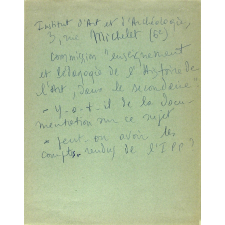 Institut d'Art et d'Archéologie,
3, rue Michelet (6e)
Commission "enseignement
et pédagogie de l'Histoire de
l'Art, dans le secondaire"
- Y-a-t-il de la docu-
mentation sur ce sujet
- peut-on avoir les
comptes rendus de l'IPP ?